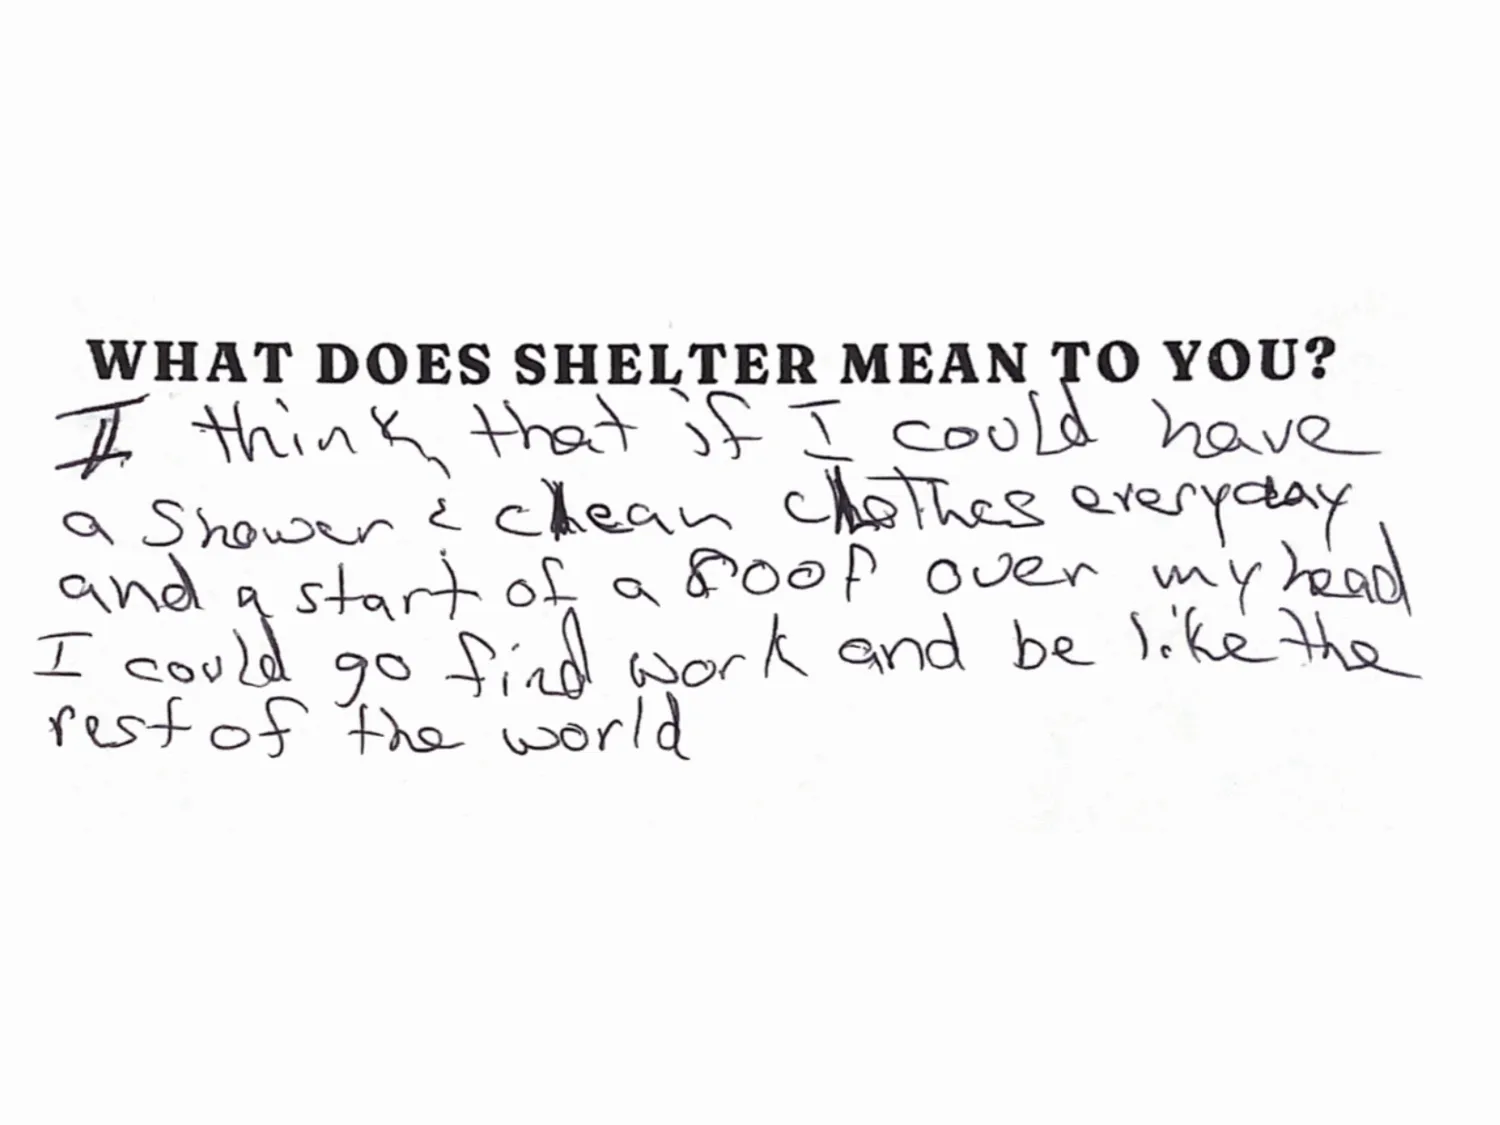 WHAT DOES SHELTER MEAN TO YOU?
I think that if I could have
a shower & clean clothes everyday
and a start of a roof over my head
I could go find work and be like the
rest of the world